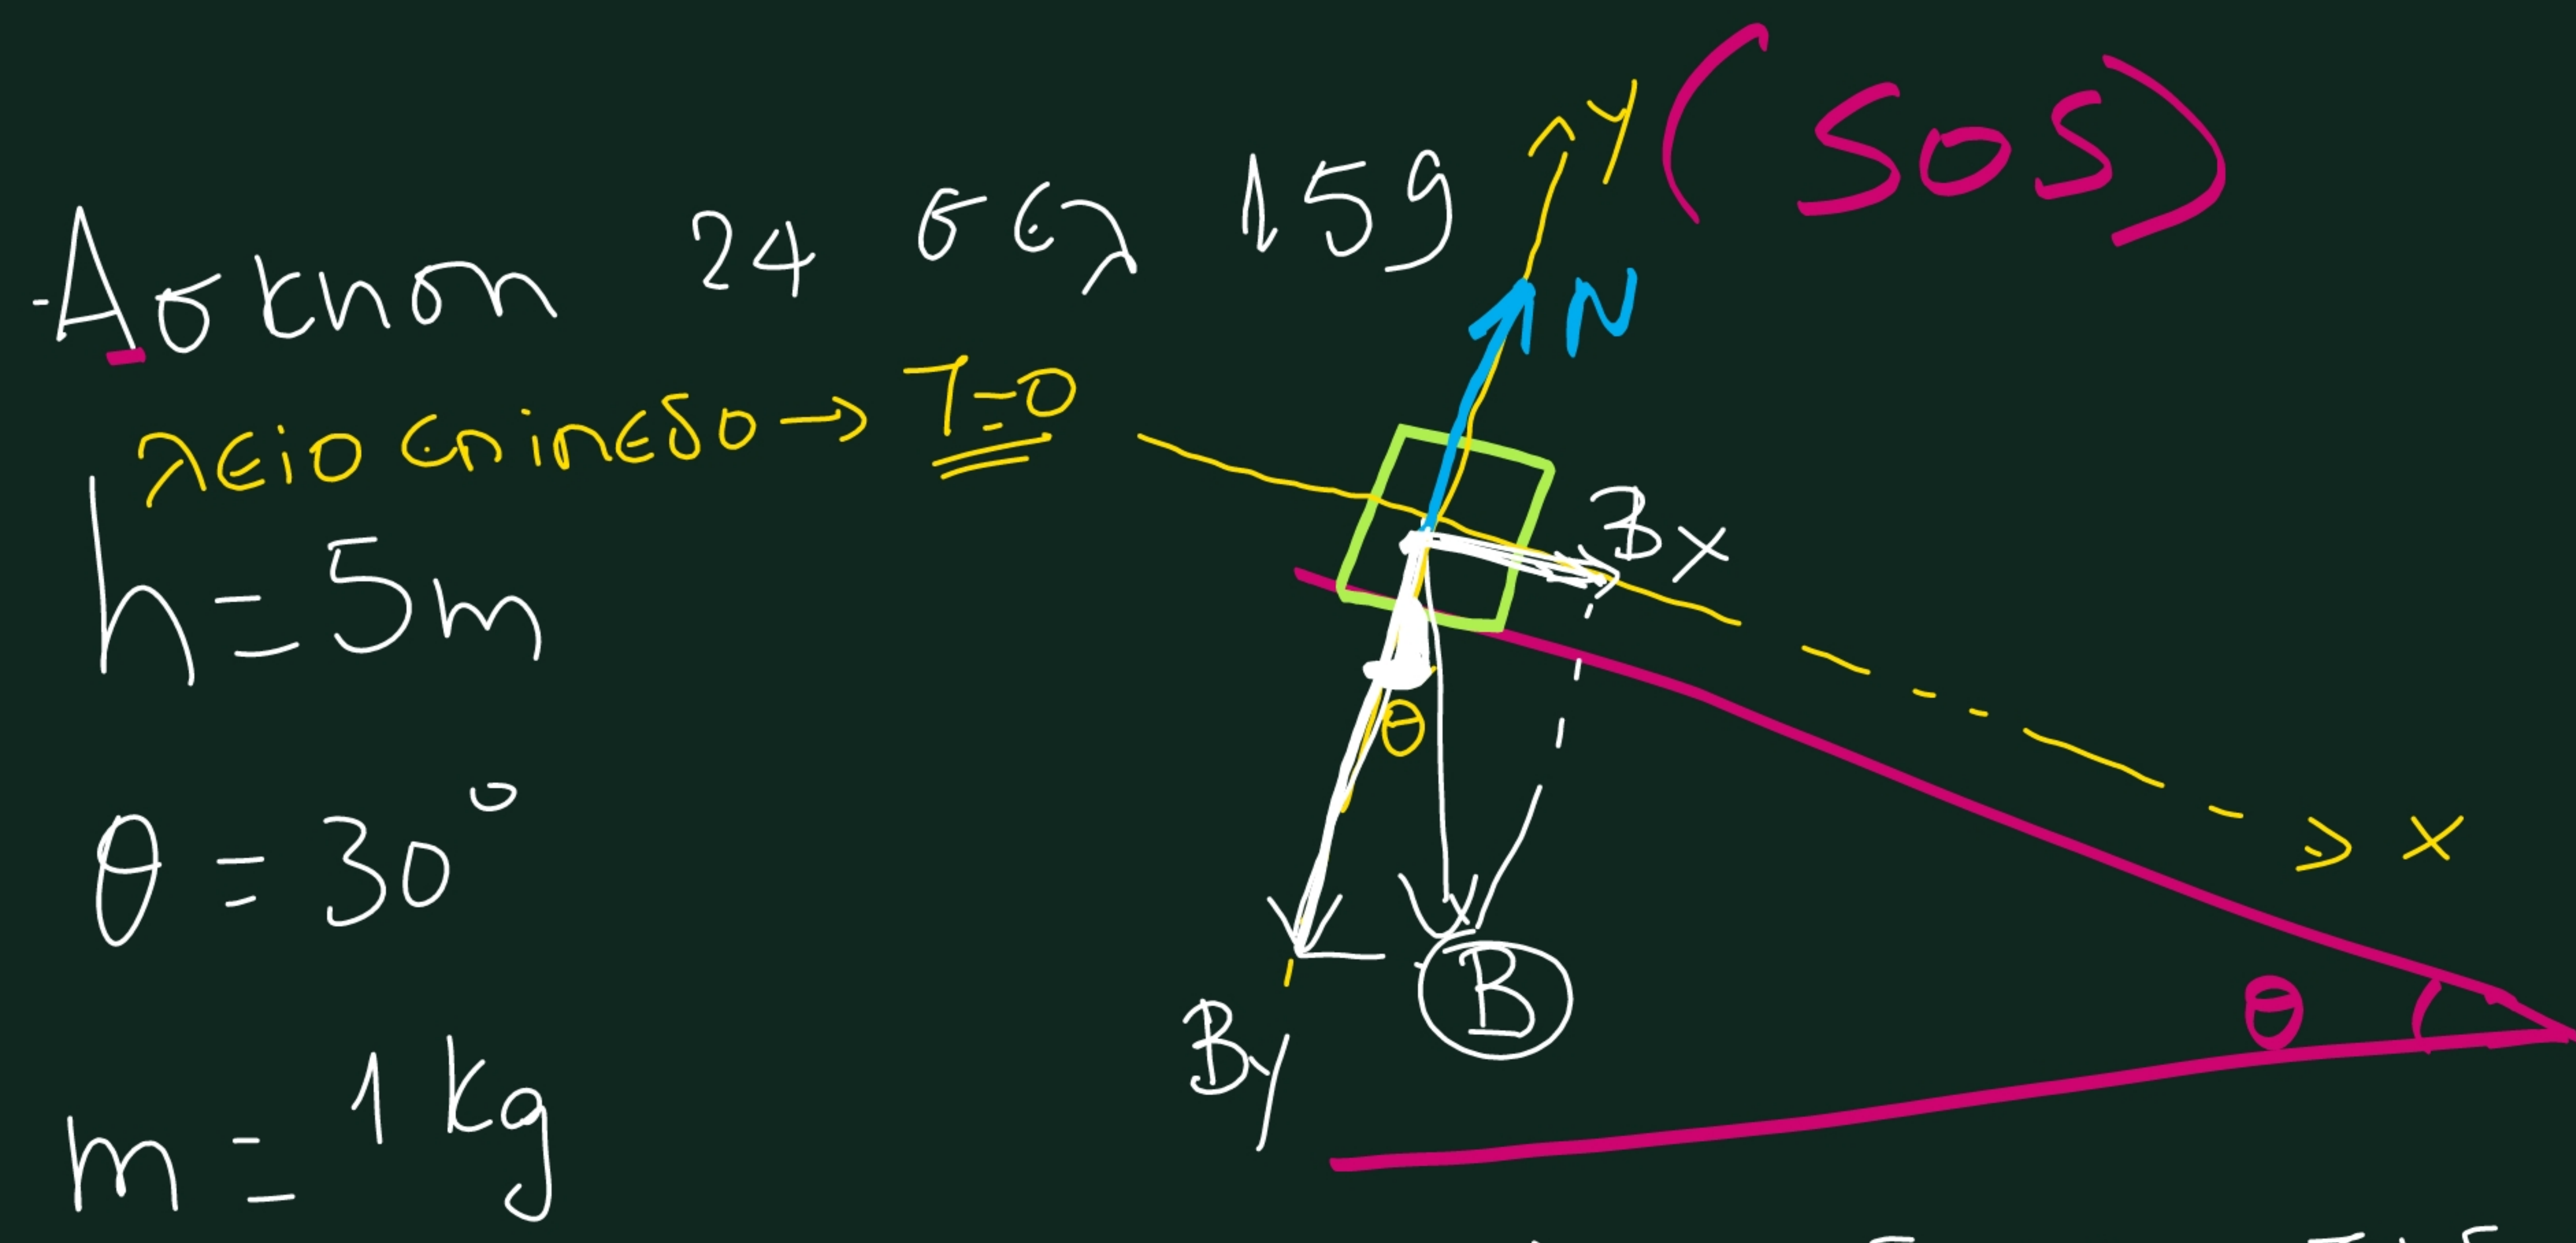 Άσκηση 24 σελ 159 (SOS)
λείο επίπεδο → T=0
h=5m
θ = 30°
m = 1 kg
y
N
Bx
θ
x
B
By
θ